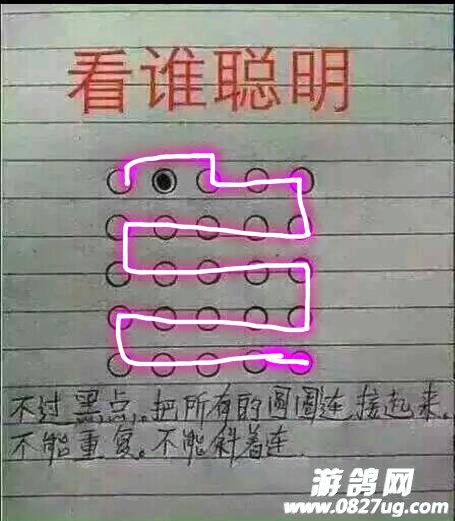 看谁聪明
不过黑点。把所有的圆圈连接起来。
不能重复。不能斜着连.
游鸽网
www.0827ug.com